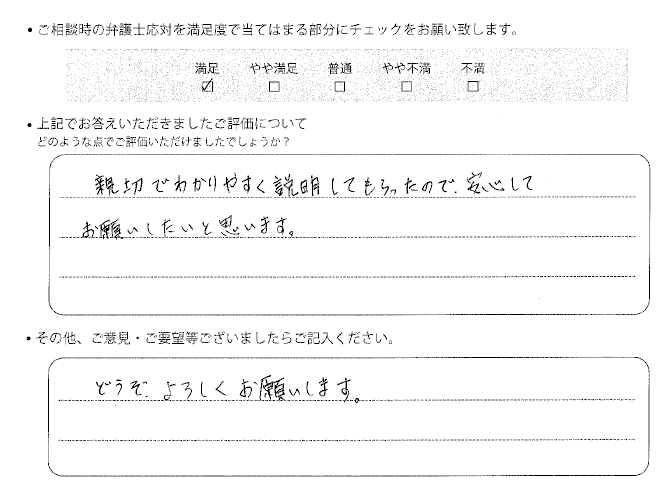 ・ご相談時の弁護士応対を満足度で当てはまる部分にチェックをお願い致します。
満足 やや満足 普通 やや不満 不満
☑ □ □ □ □
・上記でお答えいただきましたご評価について
どのような点でご評価いただけましたでしょうか？
親切でわかりやすく説明してもらったので、安心して
お願いしたいと思います。
・その他、ご意見・ご要望等ございましたらご記入ください。
どうぞ、よろしくお願いします。